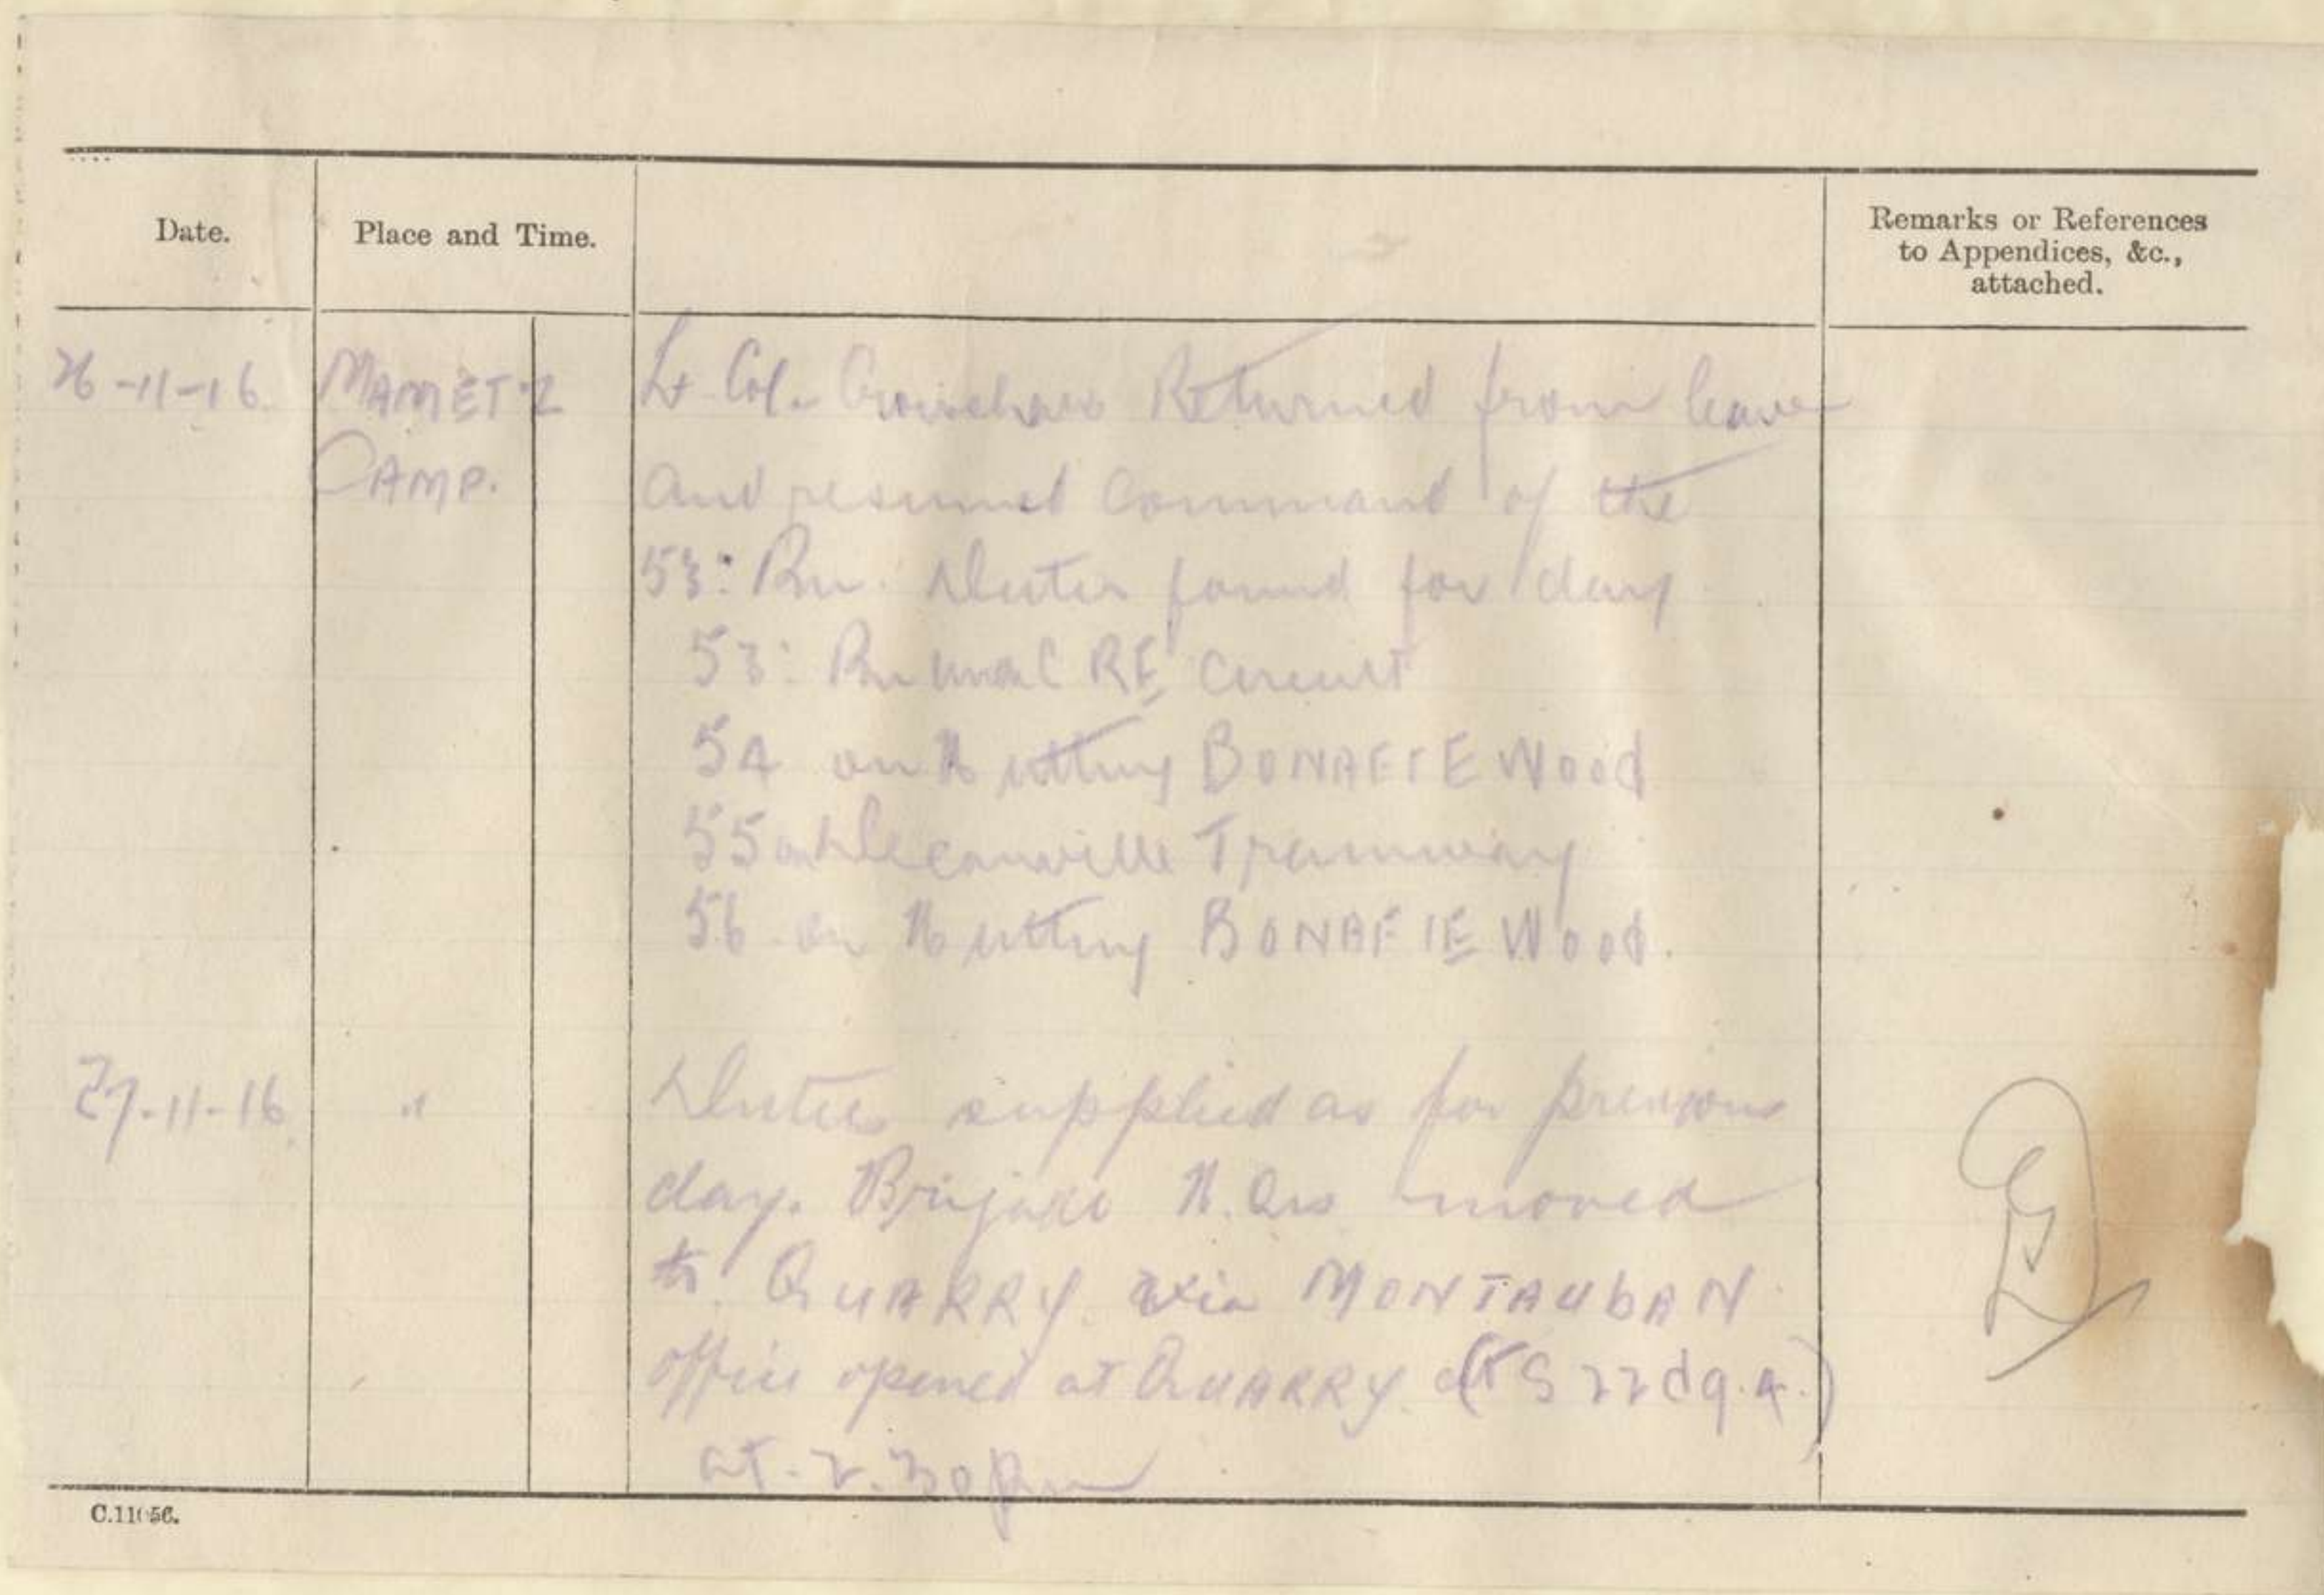 Date.
Place and Time.
Remarks or References
to Appendices, &c.,
attached.
26-11-16 MAMETZ Lt Col. Croshaw Returned from leave
CAMP. and resumed Command of the
53: Bn. Duties found for day
53: Bn C RE Circuit
54 on Hutting BONAFIE Wood
55 on Decauville Tramway
56 on Hutting BONAFIE Wood.
27-11-16 " Duties supplied as for previous
day. Brigade H.Qrs moved
to QUARRY MONTAUBAN
office opened at QUARRY (S 22 d 9.4.)
at 2.30 pm
C.11056.